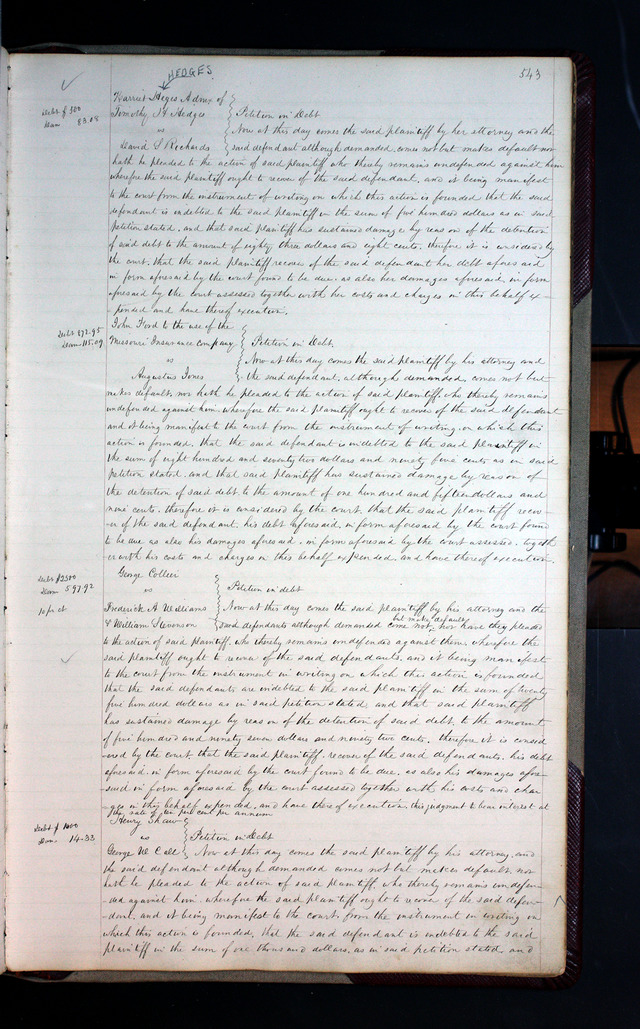 HEDGES
543
Harriet Heges Admx of
Timothy H Hedges
vs
David S Richards
Debt $500
Dam 83.08
Petition in Debt
Now at this day comes the said plaintiff by her attorney and the
said defendant although demanded, comes not but makes default nor
hath he pleaded to the action of said plaintiff who thereby remains undefended against him
wherefore the said plaintiff ought to recover of the said defendant, and it being manifest
to the court from the instrument of writing on which this action is founded that the said
defendant is indebted to the said plaintiff in the sum of five hundred dollars as in said
petition stated, and that said plaintiff has sustained damage by reason of the detention
of said debt to the amount of eighty three dollars and eight cents, therefore it is considered by
the court, that the said plaintiff recover of the said defendant her debt aforesaid
in form aforesaid by the court found to be due, as also her damages aforesaid, in form
aforesaid by the court assessed together with her costs and charges in this behalf ex-
pended and have thereof execution.
Debt 872.95
Dam 115.09
John Ford to the use of the
Missouri Insurance company
vs
Augustus Jones
Petition in Debt.
Now at this day comes the said plaintiff by his attorney and
the said defendant, although demanded, comes not but
makes default, nor hath he pleaded to the action of said plaintiff, who thereby remains
undefended against him, wherefore the said plaintiff ought to recover of the said defendant
and it being manifest to the court from the instrument of writing on which this
action is founded, that the said defendant is indebted to the said plaintiff in
the sum of eight hundred and seventy two dollars and ninety five cents as in said
petition stated, and that said plaintiff has sustained damage by reason of
the detention of said debt to the amount of one hundred and fifteen dollars and
nine cents, therefore it is considered by the court, that the said plaintiff recov-
er of the said defendant, his debt aforesaid, in form aforesaid by the court found
to be due as also his damages aforesaid, in form aforesaid by the court assessed, togeth
er with his costs and charges in this behalf expended, and have thereof execution.
Debt $2500
Dam 597.92
10 pr ct
George Collier
vs
Frederick A Williams
& William Stevenson
Petition in debt
Now at this day comes the said plaintiff by his attorney and the
but make default
said defendants although demanded come not, nor have they pleaded
to the action of said plaintiff, who thereby remains undefended against them, wherefore the
said plaintiff ought to recover of the said defendants, and it being manifest
to the court from the instrument in writing on which the action is founded
that the said defendants are indebted to the said plaintiff in the sum of twenty
five hundred dollars as in said petition stated, and that said plaintiff
has sustained damage by reason of the detention of said debt, to the amount
of five hundred and ninety seven dollars and ninety two cents. therefore it is consid
ered by the court, that the said plaintiff, recover of the said defendants, his debt
aforesaid, in form aforesaid by the court found to be due, as also his damages afore-
said in form aforesaid by the court assessed together with his costs and char-
ges in this behalf expended, and have thereof execution, this judgment to bear interest at
the rate of ten per cent per annum
Debt $1000
Dam. 14.33
Henry Shaw
vs
George W. Call
Petition in Debt
Now at this day comes the said plaintiff by his attorney, and
the said defendant although demanded comes not but makes default, nor
hath he pleaded to the action of said plaintiff, who thereby remains undefen-
ded against him, wherefore the said plaintiff ought to recover of the said defen-
dant, and it being manifest to the court, from the instrument in writing on
which this action is founded, that the said defendant is indebted to the said
plaintiff in the sum of one thousand dollars, as in said petition stated, and